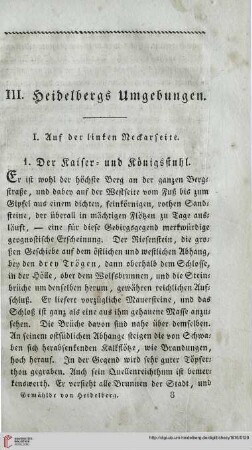 III. Heidelbergs Umgebungen.
I. Auf der linken Neckarseite.
1. Der Kaiser- und Königsstuhl.
Er ist wohl der höchste Berg an der ganzen Bergs
straße, und dabey auf der Westseite vom Fuß bis zum
Gipfel aus einem dichten, feinkörnigen, rothen Sand
steine, der überall in mächtigen Flötzen zu Tage aus
läuft, — eine für diese Gebirgsgegend merkwürdige
geognostische Erscheinung. Der Riesenstein, die gro
ßen Geschiebe auf dem östlichen und westlichen Abhang,
bey den drey Trögen, dann oberhalb dem Schlosse,
in der Hölle, ober dem Wolfsbrunnen, und die Stein
brüche um denselben herum, gewähren reichlichen Auf
schluß. Er liefert vorzügliche Mauersteine, und das
Schloß ist ganz als eine aus ihm gehauene Masse anzu
sehen. Die Brüche davon sind nahe über demselben.
An seinem ostsüdlichen Abhange steigen die von Schwa
ben sich herabsenkenden Kalkflötze, wie Brandungen,
hoch herauf. In der Gegend wird sehr guter Töpfer
thon gegraben. Auch sein Quellenreichthum ist bemer
kenswerth. Er versieht alle Brunnen der Stadt, und
Gemählde von Heidelberg. 8
UNIVERSITÄTS-
BIBLIOTHEK
HEIDELBERG